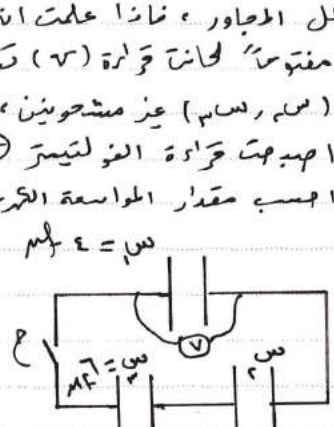 كل المجاور ، فإذا علمت ان
مفتوحاً كانت قراءة (V)
(س١ ، س٣) غير مشحونين ،
اصبحت قراءة الفولتيمتر
احسب مقدار المواسعة الكهر
س١ = ٤ μf
V
ح
س٣ = ٦ μf
س٢